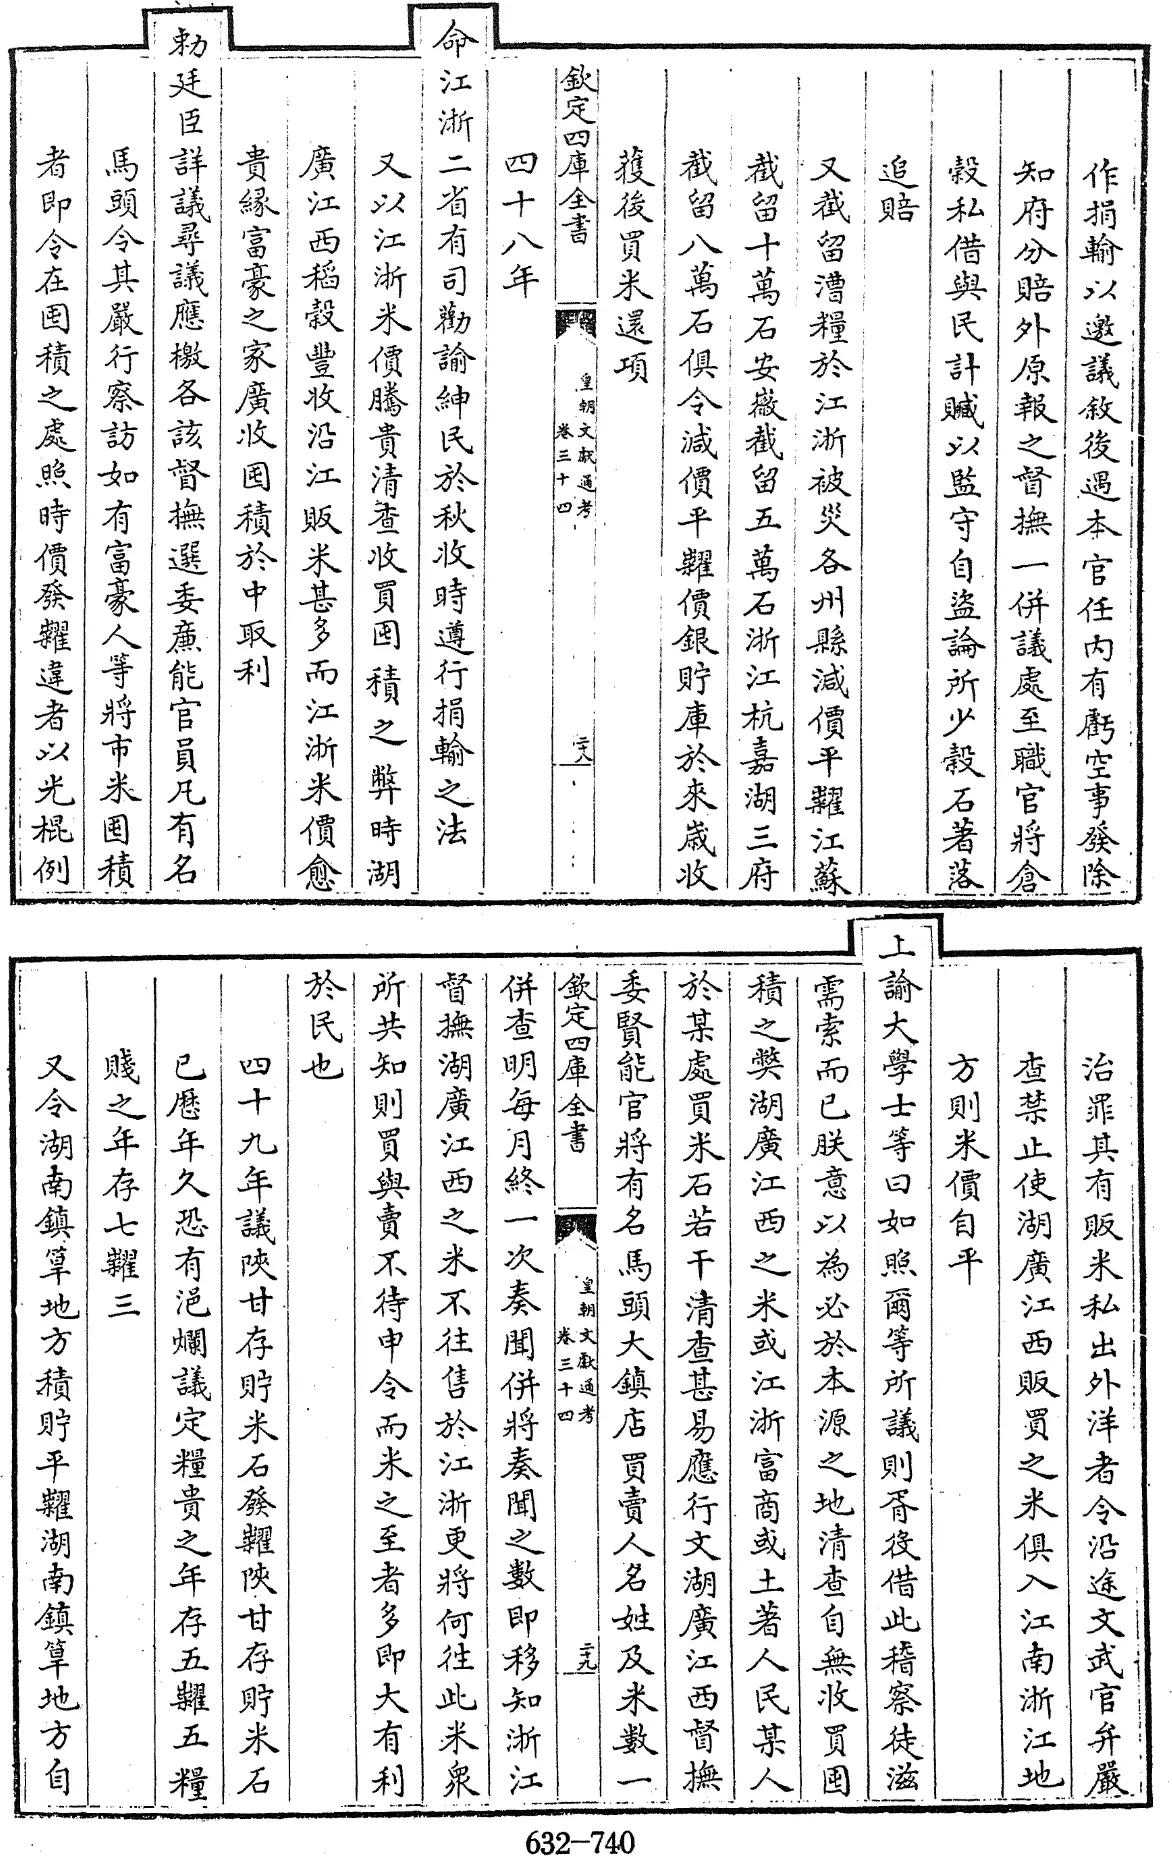 作捐輸以邀議敘後遇本官任内有虧空事發除
知府分賠外原報之督撫一併議處至職官將倉
穀私借與民計贓以監守自盜論所少穀石著落
追賠
又截留漕糧於江浙被災各州縣減價平糶江蘇
截留十萬石安徽截留五萬石浙江杭嘉湖三府
截留八萬石俱令減價平糶價銀貯庫於來歲收
穫後買米還項
欽定四庫全書
皇朝文獻通考
卷三十四
二十八
四十八年
命江浙二省有司勸諭紳民於秋收時遵行捐輸之法
又以江浙米價騰貴清查收買囤積之弊時湖
廣江西稻穀豐收沿江販米甚多而江浙米價愈
貴縁富豪之家廣收囤積於中取利
勅廷臣詳議尋議應檄各該督撫選委廉能官員凡有名
馬頭令其嚴行察訪如有富豪人等將市米囤積
者即令在囤積之處照時價發糶違者以光棍例
治罪其有販米私出外洋者令沿途文武官弁嚴
查禁止使湖廣江西販買之米俱入江南浙江地
方則米價自平
上諭大學士等曰如照爾等所議則胥役借此稽察徒滋
需索而已朕意以為必於本源之地清查自無收買囤
積之獘湖廣江西之米或江浙富商或土著人民某人
於某處買米石若干清查甚易應行文湖廣江西督撫
委賢能官將有名馬頭大鎮店買賣人名姓及米數一
欽定四庫全書
皇朝文獻通考
卷三十四
二十九
併查明每月終一次奏聞併將奏聞之數即移知浙江
督撫湖廣江西之米不往售於江浙更將何往此米衆
所共知則買與賣不待申令而米之至者多即大有利
於民也
四十九年議陜甘存貯米石發糶陜甘存貯米石
已歴年久恐有浥爛議定糧貴之年存五糶五糧
賤之年存七糶三
又令湖南鎮筸地方積貯平糶湖南鎮筸地方自
632-740